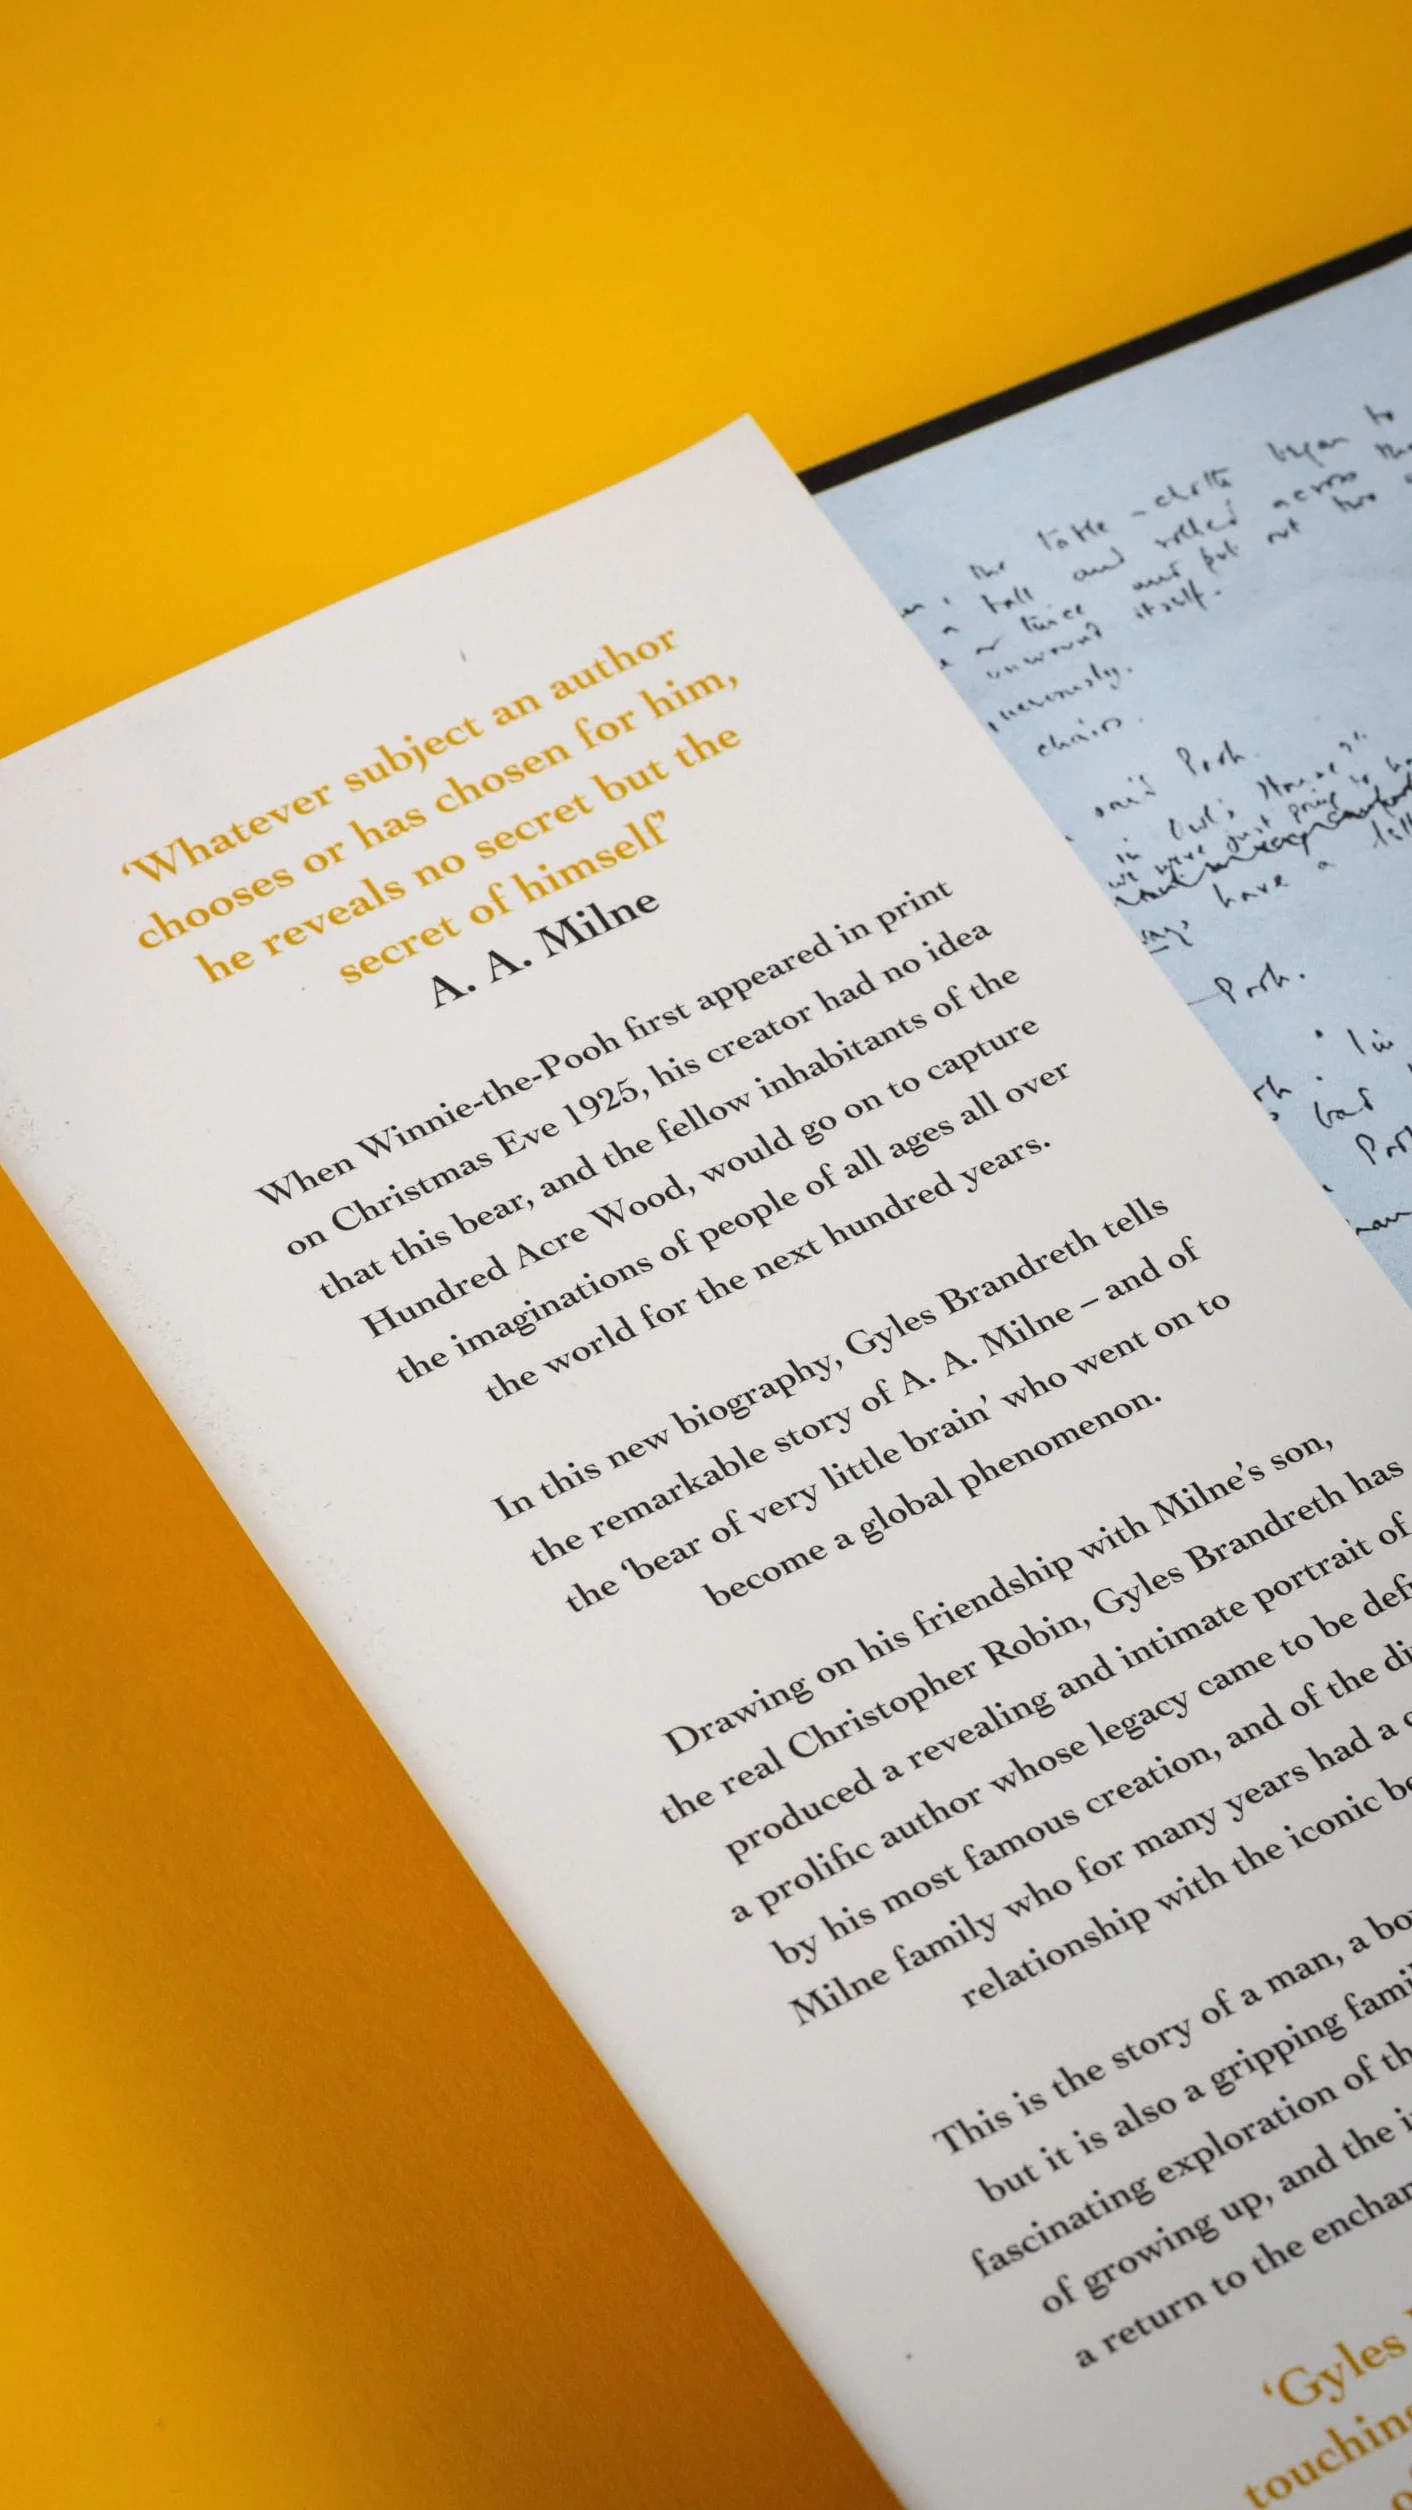 ‘Whatever subject an author
chooses or has chosen for him,
he reveals no secret but the
secret of himself’
A. A. Milne
When Winnie-the-Pooh first appeared in print
on Christmas Eve 1925, his creator had no idea
that this bear, and the fellow inhabitants of the
Hundred Acre Wood, would go on to capture
the imaginations of people of all ages all over
the world for the next hundred years.
In this new biography, Gyles Brandreth tells
the remarkable story of A. A. Milne – and of
the ‘bear of very little brain’ who went on to
become a global phenomenon.
Drawing on his friendship with Milne’s son,
the real Christopher Robin, Gyles Brandreth has
produced a revealing and intimate portrait of
a prolific author whose legacy came to be
by his most famous creation, and of the
Milne family who for many years had a
relationship with the iconic
This is the story of a man, a
but it is also a gripping
fascinating exploration of
of growing up, and the
a return to the
‘Gyles
the table-cloth began to
a ball and rolled across the
or twice and put out two
unwound itself.
chairs.
said Pooh.
in Owl's House
we were just going to
have a
Pooh.